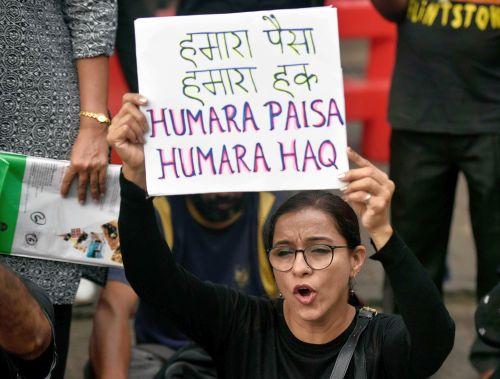 हमारा पैसा
हमारा हक
HUMARA PAISA
HUMARA HAQ
FLINTSTO